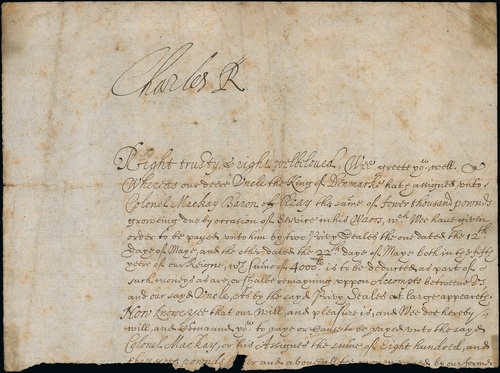 Charles R
Right trusty & right wellbeloved, Wee greete yow well.
Whereas our deere Uncle the King of Denmarke hath assigned unto
Colonel Mackay Baron of Reay the some of fower thousand pownds
growing due by occasion of service in his Warrs, wch Wee haue given
order to be payed unto him by two Privy Seales the one dated the 12th
Daye of Maye, and the other dated the 22th daye of Maye both in the fift
yeere of our Reigne, wch summe of 4000li is to be deducted as part of
such monys as are, or shalbe remayning uppon Accompts betweene Us
and our sayd Uncle, As by the sayd Privy Seales at large appeareth
Now knowe yee that our Will, and pleasure is, and Wee doe hereby
will, and Comaund yow to paye or cause to be payed unto the sayd
Colonel Mackay, or his Assignes the some of Eight hundred, and
pownds over and above all the by our former